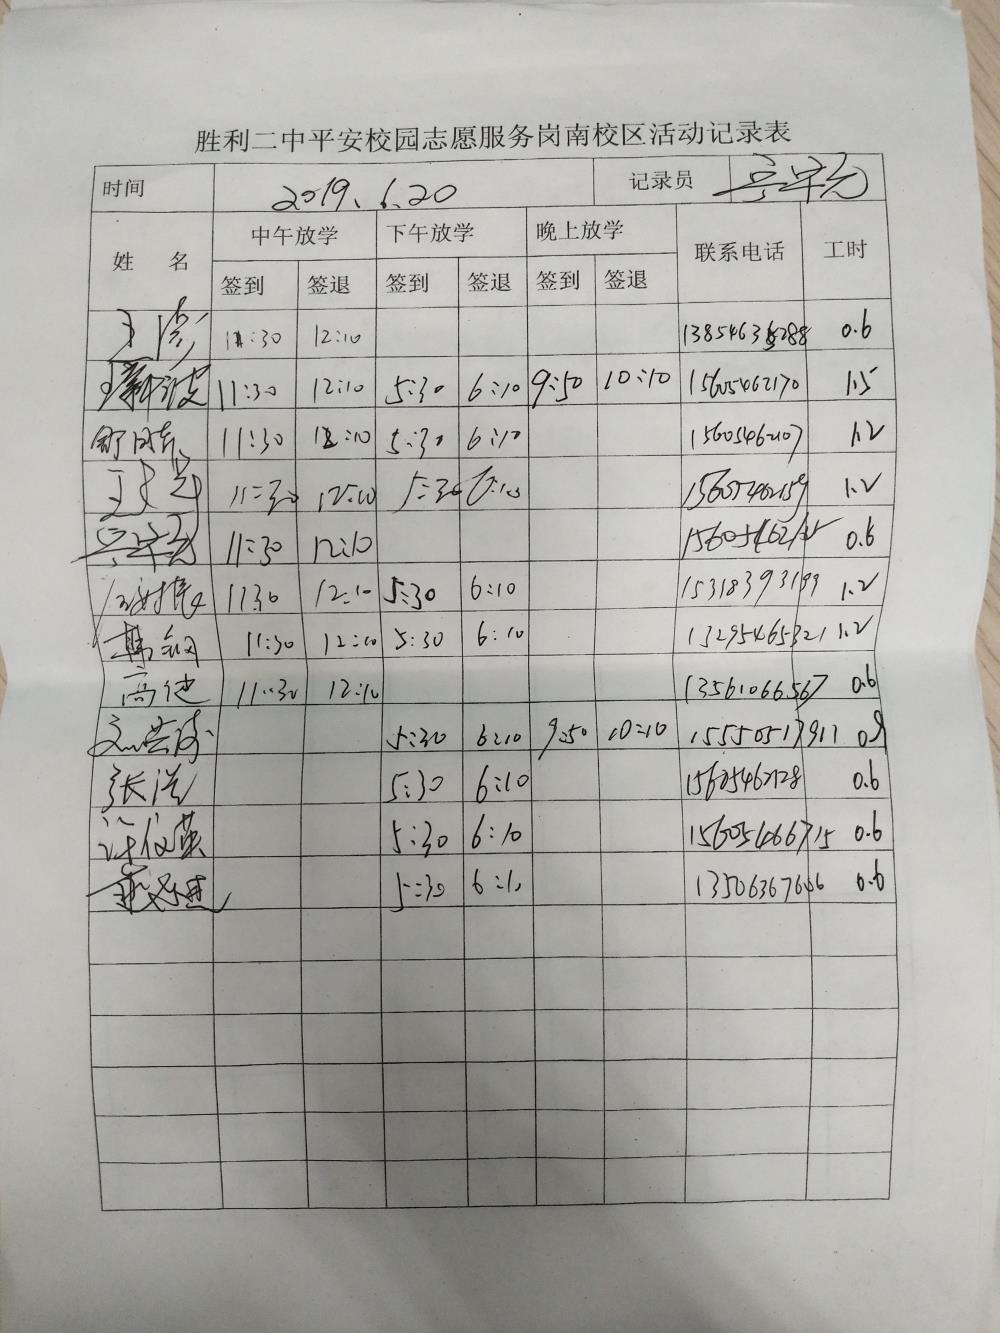 胜利二中平安校园志愿服务岗南校区活动记录表
时间 2019.6.20 记录员
姓 名 中午放学 下午放学 晚上放学 联系电话 工时
签到 签退 签到 签退 签到 签退
王 11:30 12:10 0.6
11:30 12:10 5:30 6:10 9:50 10:10 15605462170 1.5
11:30 12:10 5:30 6:10 15605462107 1.2
王 11:30 12:10 5:30 6:10 15605462159 1.2
11:30 12:10 0.6
11:30 12:10 5:30 6:10 15318393199 1.2
韩钢 11:30 12:10 5:30 6:10 13295465321 1.2
高健 11:30 12:10 13561066567 0.6
5:30 6:10 9:50 10:10 15550513911 0.9
张浩 5:30 6:10 15605462128 0.6
许俊英 5:30 6:10 15605466715 0.6
5:30 6:10 13506367606 0.6